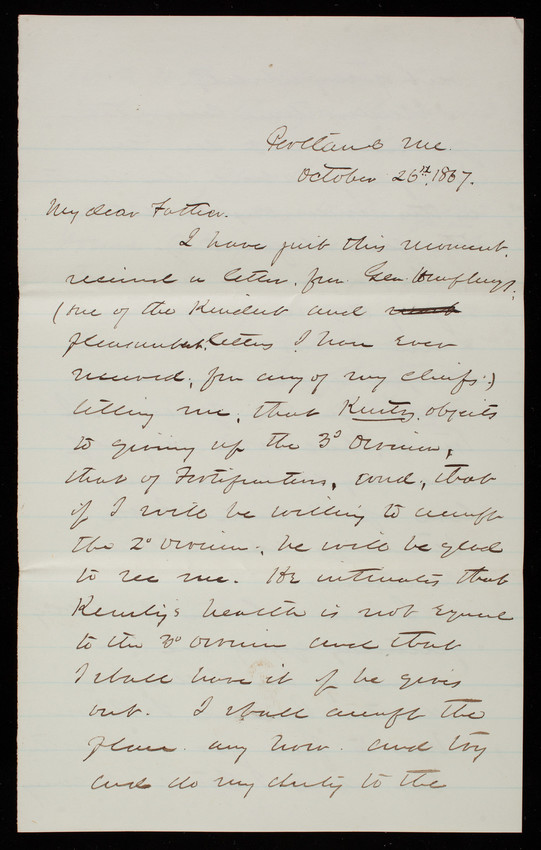 Portland Me.
October 26th, 1867.
My dear Father.
I have just this moment
received a letter, fm Gen. Humphreys,
(one of the kindest and
pleasantest letters I have ever
received, fm any of my chiefs.)
telling me, that Kurtz, objects
to giving up the 3d Division,
that of Fortifications, and, that
if I will be willing to accept
the 2d Division, he will be glad
to see me. He intimates that
Kurtz's health is not equal
to the 3d Division and that
I shall have it if he gives
out. I shall accept the
place any how. and try
and do my duty to the